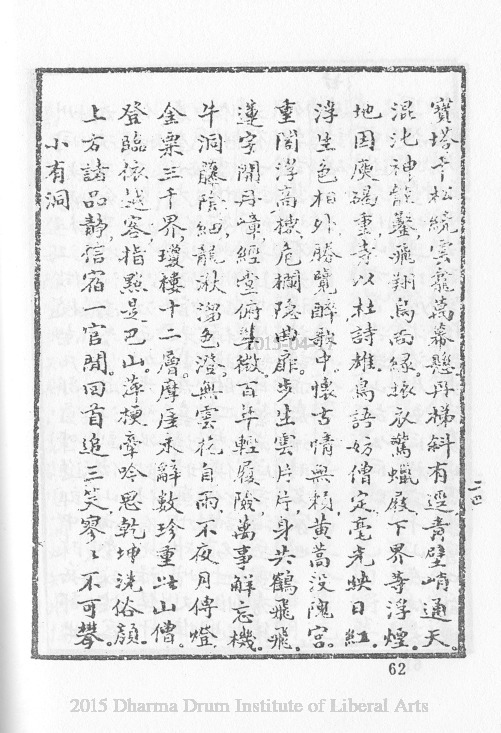 寶塔千松繞雲龕萬幕懸丹梯斜有逕青壁峭通天。
混沌神能鑿飛翔鳥尚緣振衣驚蠟屐下界等浮煙。
地因廣碣重寺以杜詩雄鳥語妨僧定毫光映日紅。
浮生色相外勝覽醉歌中懷古情無賴黃蒿沒隗宮。
重閣浮高棟危欄隱曲扉步生雲片片身共鶴飛飛。
蓮宇開丹嶂經臺俯翠微百年輕履險萬事解忘機。
牛洞藤陰細龍湫溜色澄無雲花自雨不夜月傳燈
金粟三千界瓊樓十二層摩崖未辭數珍重此山僧。
登臨袂越客指點是巴山萍梗牽吟思乾坤洗俗顏。
上方諸品靜信宿一官閒回首追三笑寥寥不可攀。
小有洞
二四
62
2015 Dharma Drum Institute of Liberal Arts